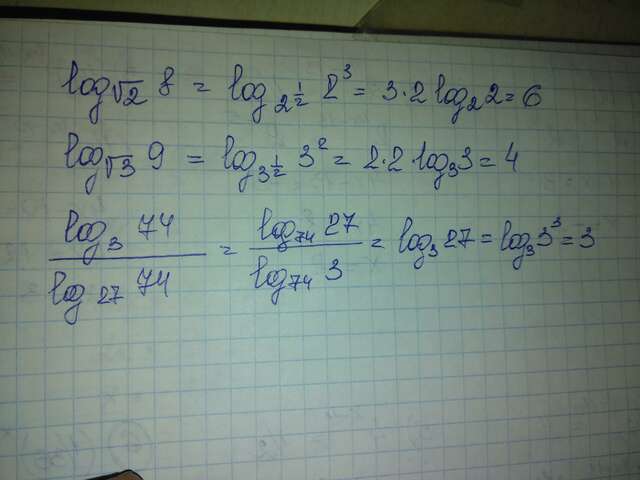 log_{√2} 8 = log_{2^{1/2}} 2^3 = 3·2 log_2 2 = 6
log_{√3} 9 = log_{3^{1/2}} 3^2 = 2·2 log_3 3 = 4
\frac{log_3 74}{log_{27} 74} = \frac{log_{74} 27}{log_{74} 3} = log_3 27 = log_3 3^3 = 3